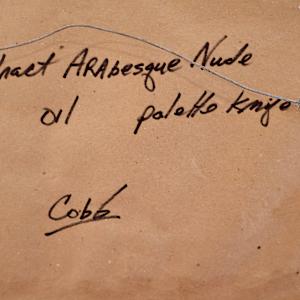 tract Arabesque Nude
oil palette knife
Cobb